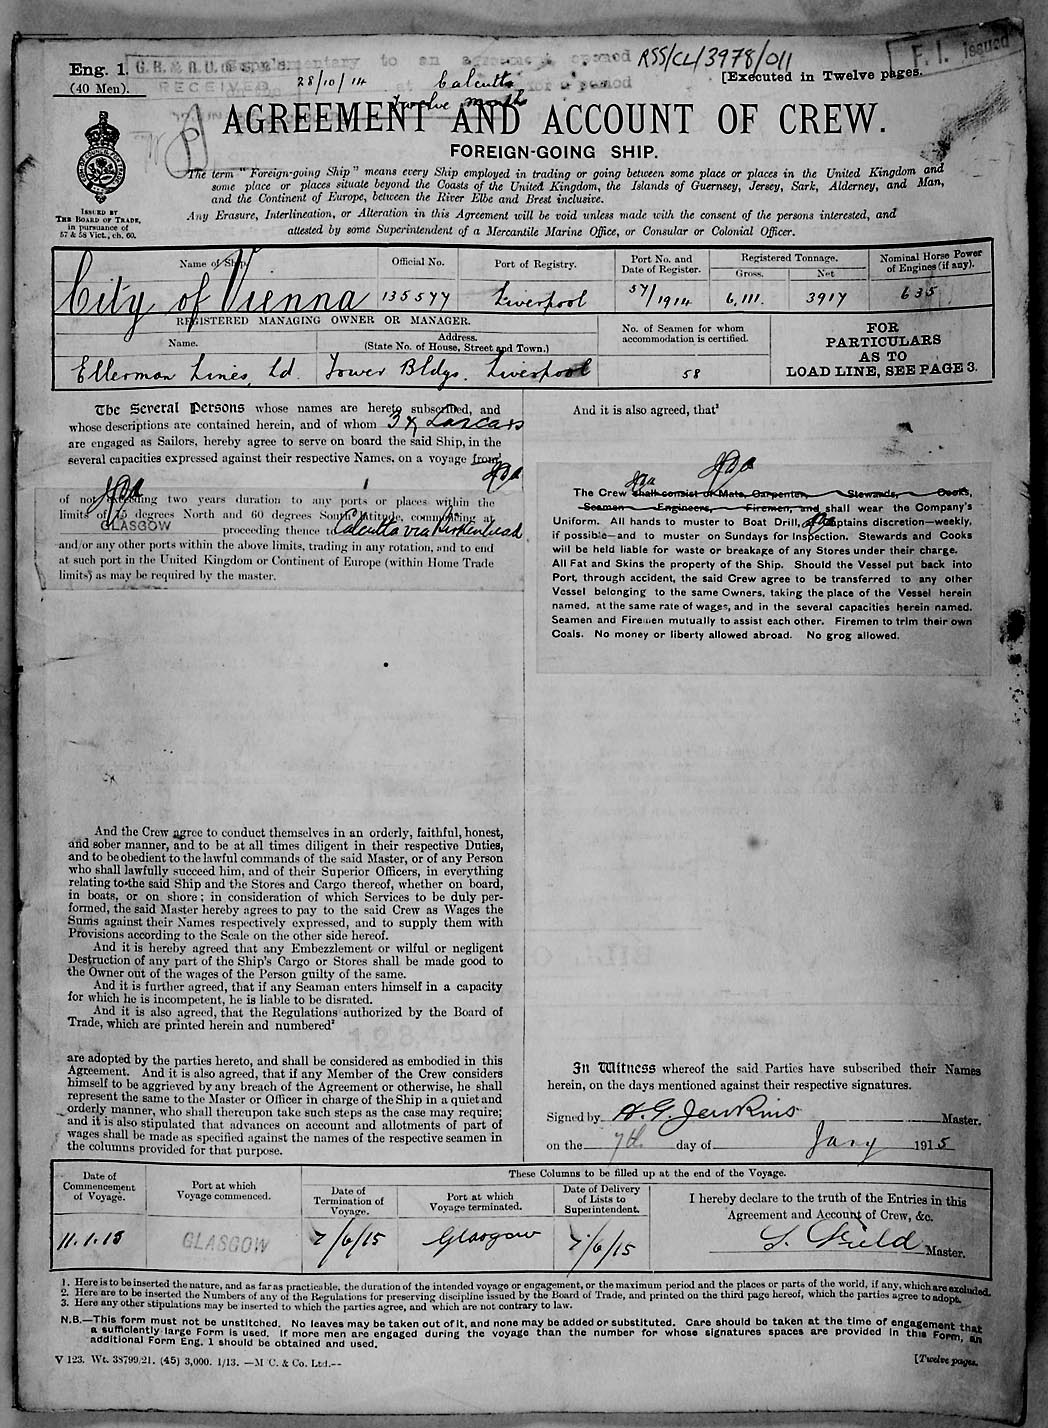 Eng. 1.
(40 Men).
RECEIVED
Supplementary to an agreement opened
at Calcutta for a period
28/10/14
twelve months
RSS/CL/3978/011
F. I. Issued
[Executed in Twelve pages.
AGREEMENT AND ACCOUNT OF CREW.
FOREIGN-GOING SHIP.
ISSUED BY
THE BOARD OF TRADE,
in pursuance of
57 & 58 Vict., ch. 60.
The term "Foreign-going Ship" means every Ship employed in trading or going between some place or places in the United Kingdom and
some place or places situate beyond the Coasts of the United Kingdom, the Islands of Guernsey, Jersey, Sark, Alderney, and Man,
and the Continent of Europe, between the River Elbe and Brest inclusive.
Any Erasure, Interlineation, or Alteration in this Agreement will be void unless made with the consent of the persons interested, and
attested by some Superintendent of a Mercantile Marine Office, or Consular or Colonial Officer.
Name of Ship.
Official No.
Port of Registry.
Port No. and
Date of Register.
Registered Tonnage.
Gross.
Net
Nominal Horse Power
of Engines (if any).
City of Vienna
135577
Liverpool
57/1914
6,111.
3917
635
REGISTERED MANAGING OWNER OR MANAGER.
Name.
Address.
(State No. of House, Street and Town.)
No. of Seamen for whom
accommodation is certified.
FOR
PARTICULARS
AS TO
LOAD LINE, SEE PAGE 3.
Ellerman Lines, Ld.
Tower Bldgs. Liverpool
58
The Several Persons whose names are hereto subscribed, and
whose descriptions are contained herein, and of whom 3 & Lascars
are engaged as Sailors, hereby agree to serve on board the said Ship, in the
several capacities expressed against their respective Names, on a voyage from
of not exceeding two years duration to any ports or places within the
limits of 75 degrees North and 60 degrees South latitude, commencing at
GLASGOW proceeding thence to Calcutta via Birkenhead
and/or any other ports within the above limits, trading in any rotation, and to end
at such port in the United Kingdom or Continent of Europe (within Home Trade
limits) as may be required by the master.
And the Crew agree to conduct themselves in an orderly, faithful, honest,
and sober manner, and to be at all times diligent in their respective Duties,
and to be obedient to the lawful commands of the said Master, or of any Person
who shall lawfully succeed him, and of their Superior Officers, in everything
relating to the said Ship and the Stores and Cargo thereof, whether on board,
in boats, or on shore; in consideration of which Services to be duly per-
formed, the said Master hereby agrees to pay to the said Crew as Wages the
Sums against their Names respectively expressed, and to supply them with
Provisions according to the Scale on the other side hereof.
And it is hereby agreed that any Embezzlement or wilful or negligent
Destruction of any part of the Ship's Cargo or Stores shall be made good to
the Owner out of the wages of the Person guilty of the same.
And it is further agreed, that if any Seaman enters himself in a capacity
for which he is incompetent, he is liable to be disrated.
And it is also agreed, that the Regulations authorized by the Board of
Trade, which are printed herein and numbered²
are adopted by the parties hereto, and shall be considered as embodied in this
Agreement. And it is also agreed, that if any Member of the Crew considers
himself to be aggrieved by any breach of the Agreement or otherwise, he shall
represent the same to the Master or Officer in charge of the Ship in a quiet and
orderly manner, who shall thereupon take such steps as the case may require;
and it is also stipulated that advances on account and allotments of part of
wages shall be made as specified against the names of the respective seamen in
the columns provided for that purpose.
And it is also agreed, that³
The Crew shall consist of Mate, Carpenter, Stewards, Cooks,
Seamen Engineers, Firemen, and shall wear the Company's
Uniform. All hands to muster to Boat Drill, Captains discretion—weekly,
if possible—and to muster on Sundays for Inspection. Stewards and Cooks
will be held liable for waste or breakage of any Stores under their charge.
All Fat and Skins the property of the Ship. Should the Vessel put back into
Port, through accident, the said Crew agree to be transferred to any other
Vessel belonging to the same Owners, taking the place of the Vessel herein
named, at the same rate of wages, and in the several capacities herein named.
Seamen and Firemen mutually to assist each other. Firemen to trim their own
Coals. No money or liberty allowed abroad. No grog allowed.
In Witness whereof the said Parties have subscribed their Names
herein, on the days mentioned against their respective signatures.
Signed by H. G. Jenkins Master.
on the 7th day of Jany 1915
Date of
Commencement
of Voyage.
Port at which
Voyage commenced.
These Columns to be filled up at the end of the Voyage.
Date of
Termination of
Voyage.
Port at which
Voyage terminated.
Date of Delivery
of Lists to
Superintendent.
I hereby declare to the truth of the Entries in this
Agreement and Account of Crew, &c.
11.1.15
GLASGOW
7/6/15
Glasgow
7/6/15
Master.
1. Here is to be inserted the nature, and as far as practicable, the duration of the intended voyage or engagement, or the maximum period and the places or parts of the world, if any, which are excluded.
2. Here are to be inserted the Numbers of any of the Regulations for preserving discipline issued by the Board of Trade, and printed on the third page hereof, which the parties agree to adopt.
3. Here any other stipulations may be inserted to which the parties agree, and which are not contrary to law.
N.B.—This form must not be unstitched. No leaves may be taken out of it, and none may be added or substituted. Care should be taken at the time of engagement that
a sufficiently large Form is used. If more men are engaged during the voyage than the number for whose signatures spaces are provided in this Form, an
additional Form Eng. 1 should be obtained and used.
V 123. Wt. 38799/21. (45) 3,000. 1/13. —M C. & Co. Ltd.--
[Twelve pages.